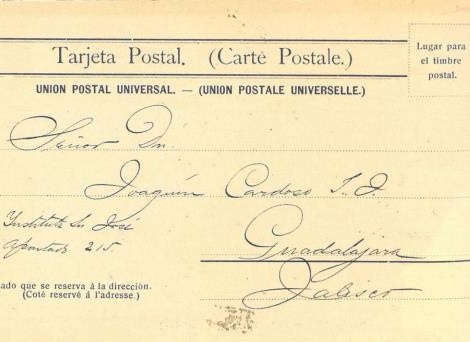 Tarjeta Postal. (Carte Postale.)
Lugar para
el timbre
postal.
UNION POSTAL UNIVERSAL. — (UNION POSTALE UNIVERSELLE.)
Señor Dn.
Joaquín Cardoso S. J.
Instituto Sn José
Apartado 215
Guadalajara
Jalisco
ado que se reserva á la dirección.
(Coté reservé á l'adresse.)